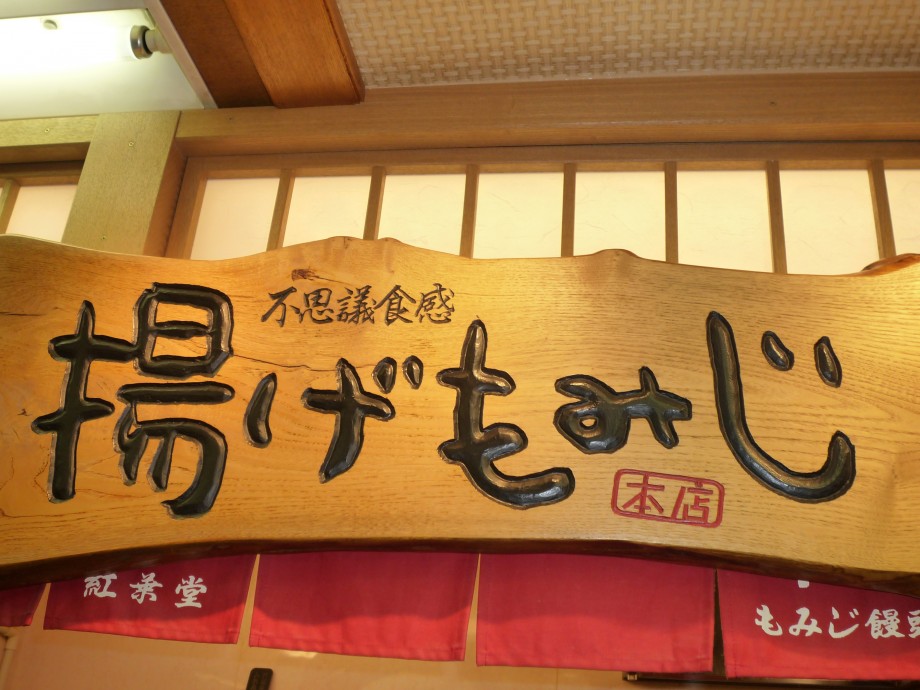 不思議食感
揚げもみじ
本店
紅葉堂
もみじ饅